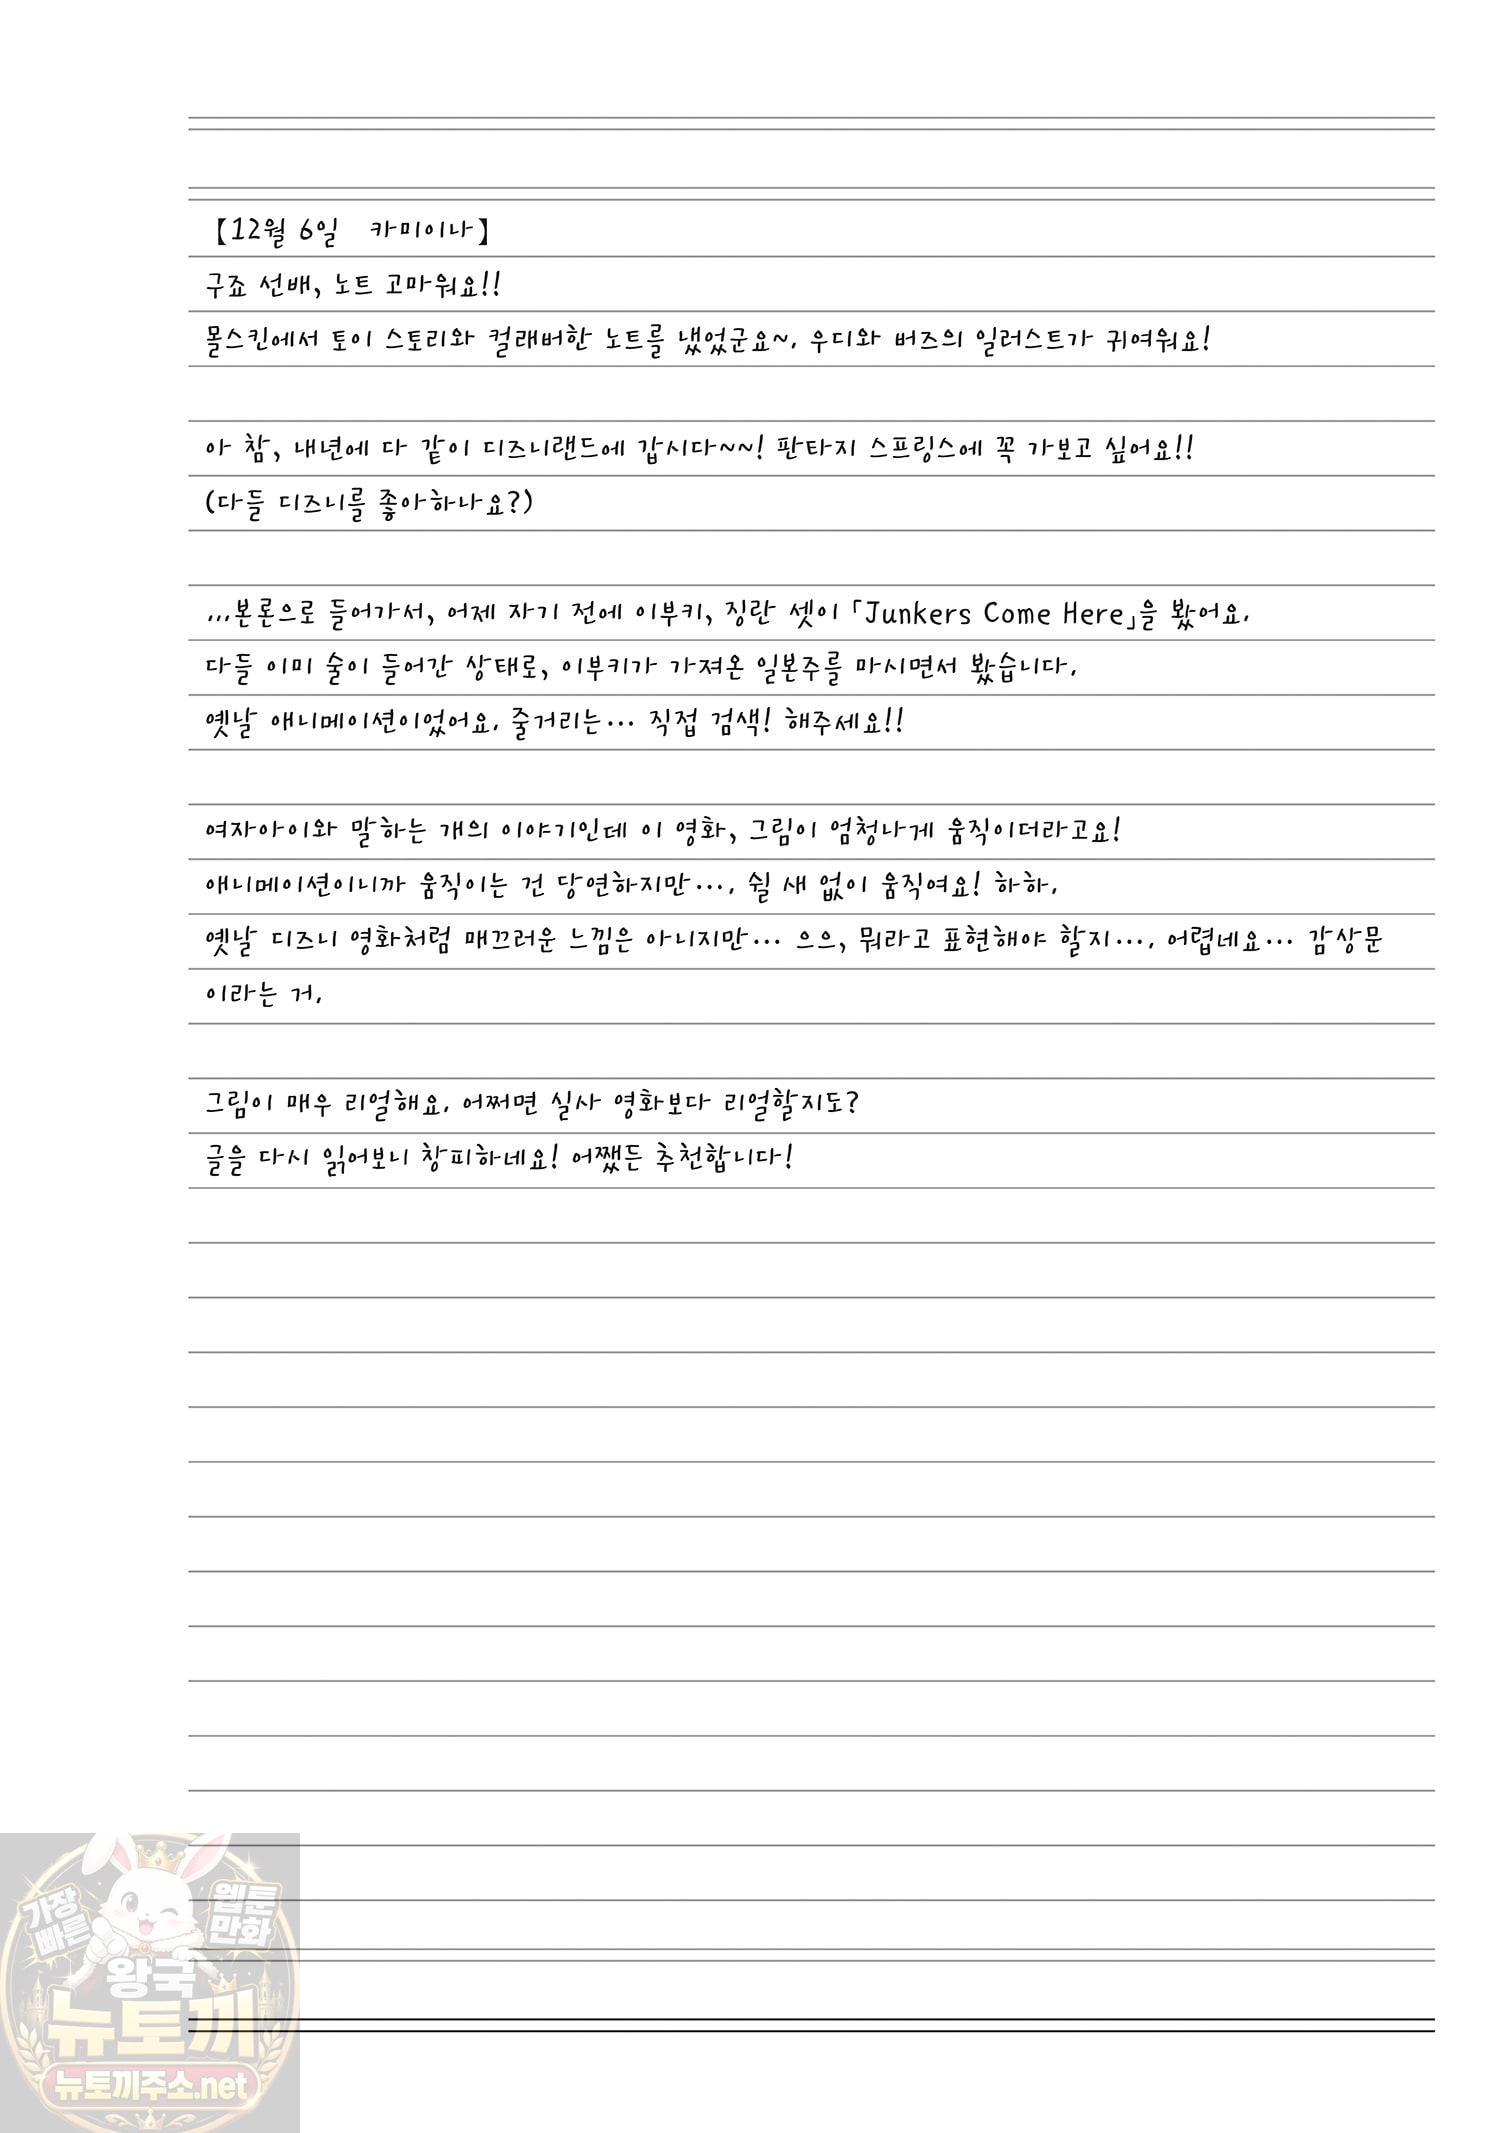 【12월 6일　카미이나】
구죠 선배, 노트 고마워요!!
몰스킨에서 토이 스토리와 컬래버한 노트를 냈었군요~. 우디와 버즈의 일러스트가 귀여워요!
아 참, 내년에 다 같이 디즈니랜드에 갑시다~~! 판타지 스프링스에 꼭 가보고 싶어요!!
(다들 디즈니를 좋아하나요?)
...본론으로 들어가서, 어제 자기 전에 이부키, 징란 셋이 「Junkers Come Here」을 봤어요.
다들 이미 술이 들어간 상태로, 이부키가 가져온 일본주를 마시면서 봤습니다.
옛날 애니메이션이었어요. 줄거리는… 직접 검색! 해주세요!!
여자아이와 말하는 개의 이야기인데 이 영화, 그림이 엄청나게 움직이더라고요!
애니메이션이니까 움직이는 건 당연하지만…. 쉴 새 없이 움직여요! 하하.
옛날 디즈니 영화처럼 매끄러운 느낌은 아니지만… 으으, 뭐라고 표현해야 할지…. 어렵네요… 감상문
이라는 거.
그림이 매우 리얼해요. 어쩌면 실사 영화보다 리얼할지도?
글을 다시 읽어보니 창피하네요! 어쨌든 추천합니다!
가장
빠른
웹툰
만화
왕국
뉴토끼
뉴토끼주소.net